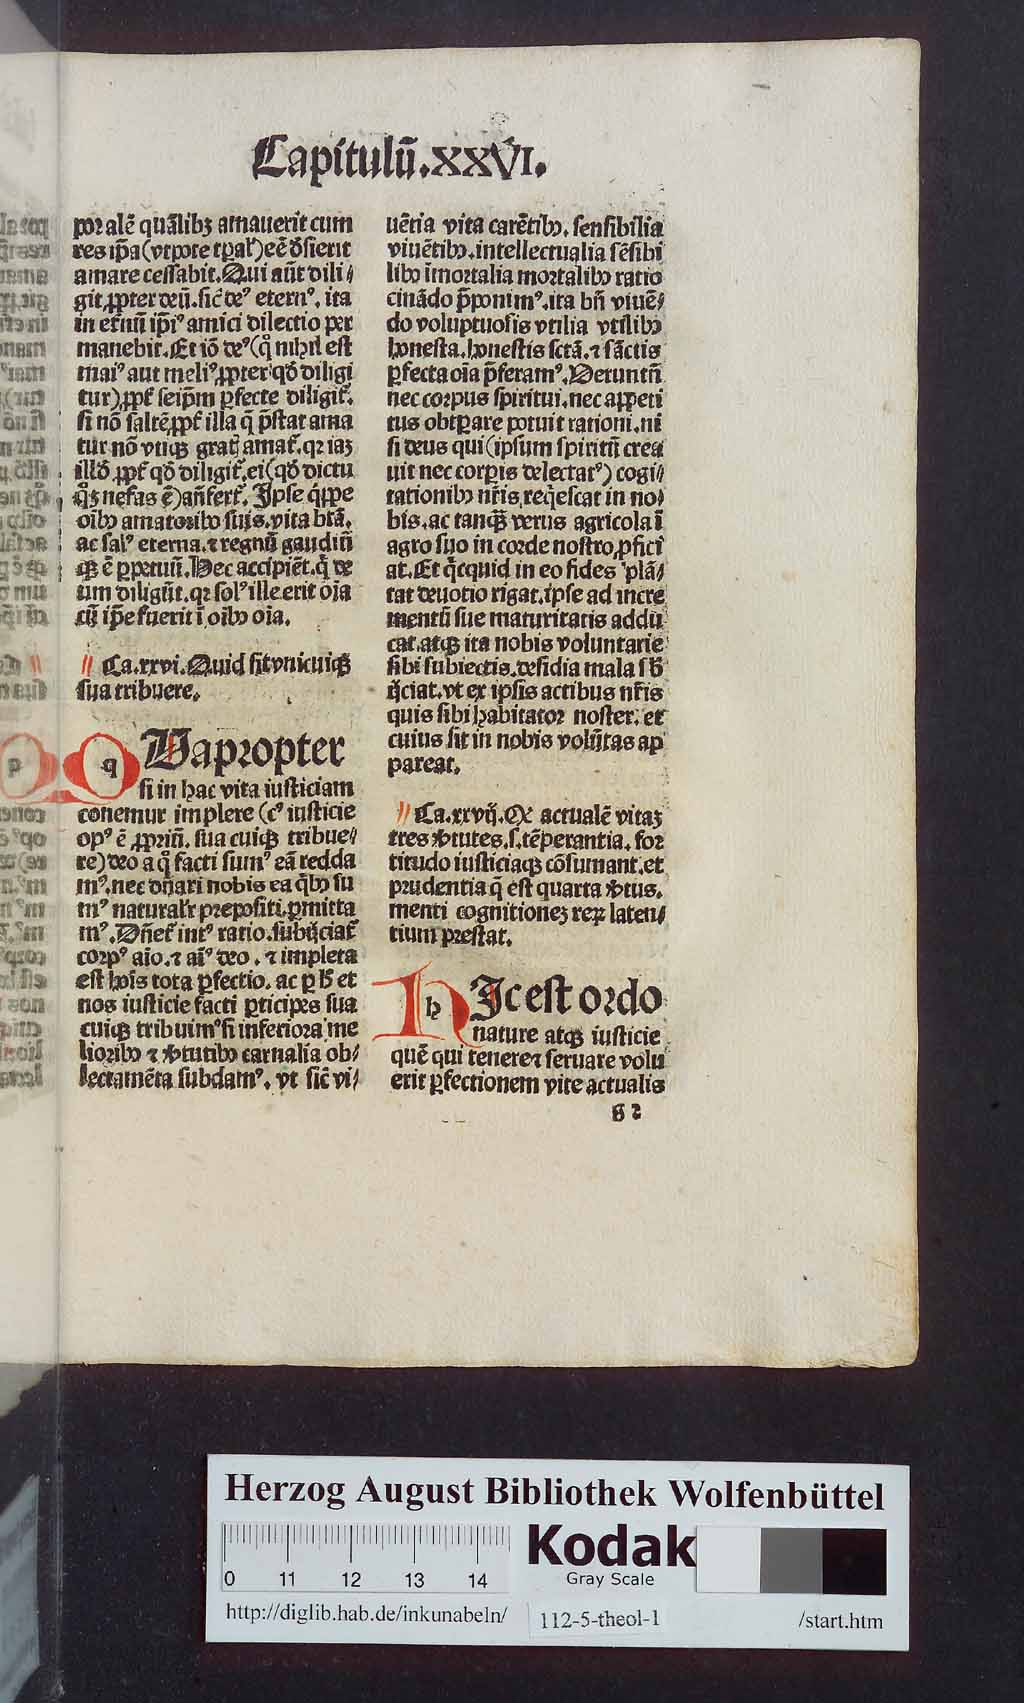 Capitulū.XXVI.
por alē quālibꝫ amauerit cum
res ip̄a (vtpote tꝑal') eē dꝰsierit
amare cessabit. Qui aūt dili⸗
git ꝓpter deū. sic̄ deꝰ eternꝰ. ita
in eṫnū ip̄iꝰ amici dilectio per
manebit. Et iō deꝰ (q̊ nihil est
maiꝰ aut meliꝰ ꝓpter qd̄ diligi
tur) ꝓpṫ seip̄m ꝑfecte diligiṫ.
si nō saltē ꝓpṫ illa q̄ p̄stat ama
tur nō vtiqꝫ gratꝭ amaṫ. qꝛ iaꝫ
illd̄ ꝓpṫ qd̄ diligiṫ. ei (qd̄ dictu
q̊ꝫ nefas ē) anferṫ. Ipse q̇ppe
oībꝰ amatoribꝰ suis. vita btā.
ac salꝰ eterna. ⁊ regnū gaudiū
qꝫ ē ꝑpetuū. Hec accipiēt. q̇ de
um diligūt. qꝛ solꝰ ille erit oīa
cū ip̄e fuerit ī oībꝰ oīa.
Ca.xxvi. Quid sit vnicuiqꝫ
sua tribuere.
q Uapropter
si in hac vita iusticiam
conemur implere (cꝰ iusticie
opꝰ ē ꝓpriū. sua cuiqꝫ tribue⸗
re) deo a q̊ facti sumꝰ eā redda
mꝰ. nec dn̄ari nobis ea q̇bꝰ su
mꝰ naturalr̄ prepositi. ꝑmitta
mꝰ. Dn̄eṫ intꝰ ratio. subijciaṫ
corpꝰ aīo. ⁊ aīꝰ deo. ⁊ impleta
est hoīs tota ꝑfectio. ac ꝑ hꝰ et
nos iusticie facti ꝑticipes sua
cuiqꝫ tribuimꝰ si inferiora me
lioribꝰ ⁊ v̇tutibꝰ carnalia ob⸗
lectamēta subdamꝰ. vt sic̄ vi⸗
uētia vita carētibꝰ. sensibilia
viuētibꝰ. intellectualia sēsibi
libꝰ īmortalia mortalibꝰ ratio
cinādo p̄ponimꝰ. ita bn̄ viuē⸗
do voluptuosis vtilia vtilibꝰ
honesta. honestis sctā. ⁊ sāctis
ꝑfecta oīa p̄feramꝰ. Verūtn̄
nec corpus spiritui. nec appeti
tus obtꝑare potuit rationi. ni
si deus qui (ipsum spiritū crea
uit nec corꝑis delectatꝰ) cogi⸗
tationibꝰ nr̄is reqͥescat in no⸗
bis. ac tanqꝫ verus agricola ī
agro suo in corde nostro ꝓfici
at. Et qͥcquid in eo fides plā⸗
tat deuotio rigat. ipse ad incre
mentū sue maturitatis addu
cat. atqꝫ ita nobis voluntarie
sibi subiectis. desidia mala sub
ijciat. vt ex ipsis actibus nr̄is
quis sibi habitator noster. et
cuius sit in nobis volūtas ap
pareat.
Ca.xxvij. Qꝫ actualē vitaꝫ
tres v̇tutes. s. tēperantia. for
titudo iusticiaqꝫ cōsumant. et
prudentia q̄ est quarta v̇tus.
menti cognitioneꝫ reꝝ laten⸗
tium prestat.
h Ic est ordo
nature atqꝫ iusticie
quē qui tenere ⁊ seruare volu
erit ꝑfectionem vite actualis
g 2
Herzog August Bibliothek Wolfenbüttel
0 11 12 13 14
Kodak
Gray Scale
http://diglib.hab.de/inkunabeln/ 112-5-theol-1 /start.htm